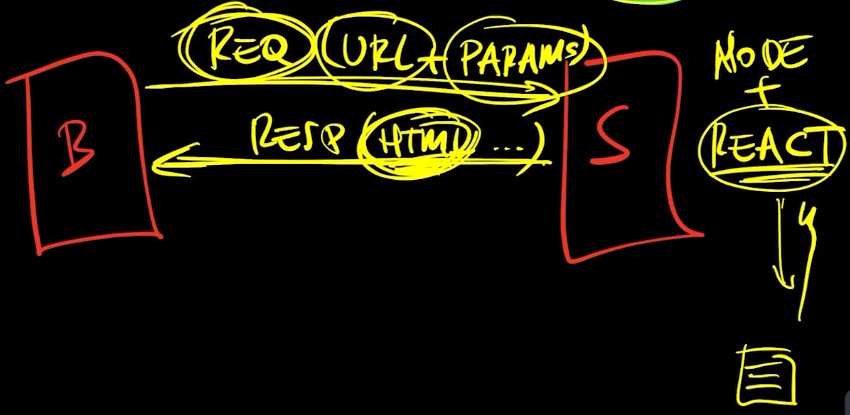 REQ (URL + PARAMS)
RESP (HTML ...)
B
S
NODE
+
REACT